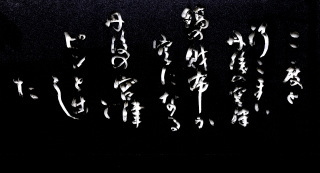 二度と
行こまい
丹後の宮津
縞の財布が
空になる
丹後の
宮津
で
ピンと出
し
た